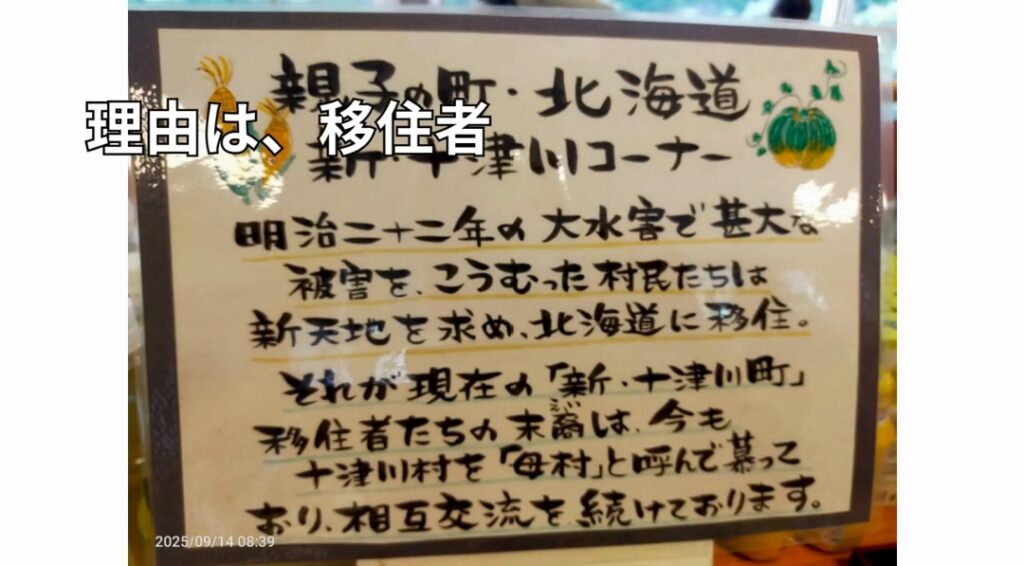 理由は、移住者
親子の町・北海道
新・十津川コーナー
明治二十二年の大水害で甚大な
被害を、こうむった村民たちは
新天地を求め、北海道に移住。
それが現在の「新・十津川町」
移住者たちの末裔は、今も
えい
十津川村を「母村」と呼んで慕って
おり、相互交流を続けております。
2025/09/14 08:39